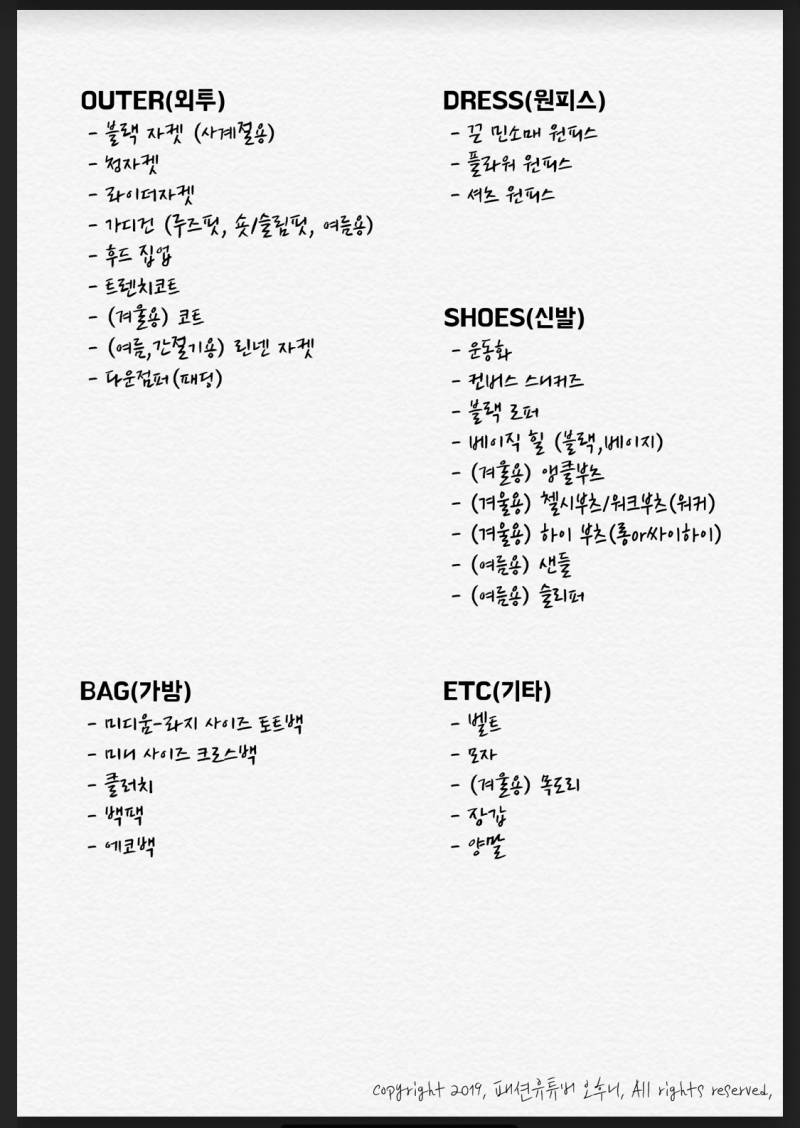 OUTER(외투)
- 블랙 자켓 (사계절용)
- 청자켓
- 라이더자켓
- 가디건 (루즈핏, 숏/슬림핏, 여름용)
- 후드 집업
- 트렌치코트
- (겨울용) 코트
- (여름,간절기용) 린넨 자켓
- 다운점퍼(패딩)
DRESS(원피스)
- 끈 민소매 원피스
- 플라워 원피스
- 셔츠 원피스
SHOES(신발)
- 운동화
- 컨버스 스니커즈
- 블랙 로퍼
- 베이직 힐 (블랙,베이지)
- (겨울용) 앵클부츠
- (겨울용) 첼시부츠/워크부츠(워커)
- (겨울용) 하이 부츠(롱or싸이하이)
- (여름용) 샌들
- (여름용) 슬리퍼
BAG(가방)
- 미디움-라지 사이즈 토트백
- 미니 사이즈 크로스백
- 클러치
- 백팩
- 에코백
ETC(기타)
- 벨트
- 모자
- (겨울용) 목도리
- 장갑
- 양말
copyright 2019, 패션유튜버 오후니, All rights reserved,